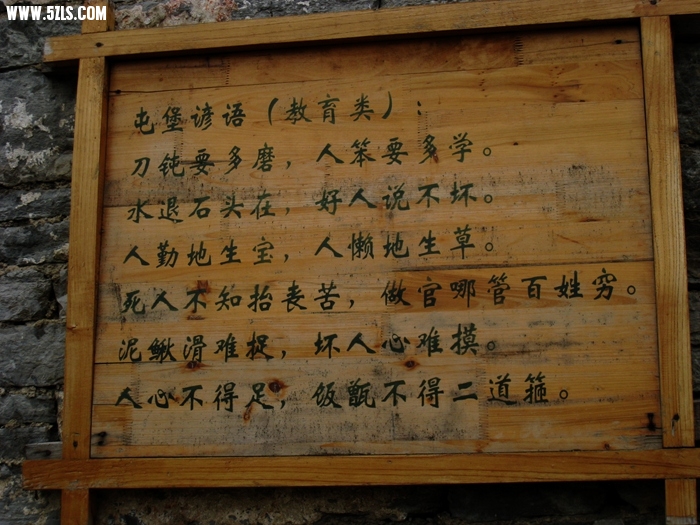 WWW.5ZLS.COM
屯堡谚语（教育类）：
刀钝要多磨，人笨要多学。
水退石头在，好人说不坏。
人勤地生宝，人懒地生草。
死人不知抬丧苦，做官哪管百姓穷。
泥鳅滑难捉，坏人心难摸。
人心不得足，饭甑不得二道箍。